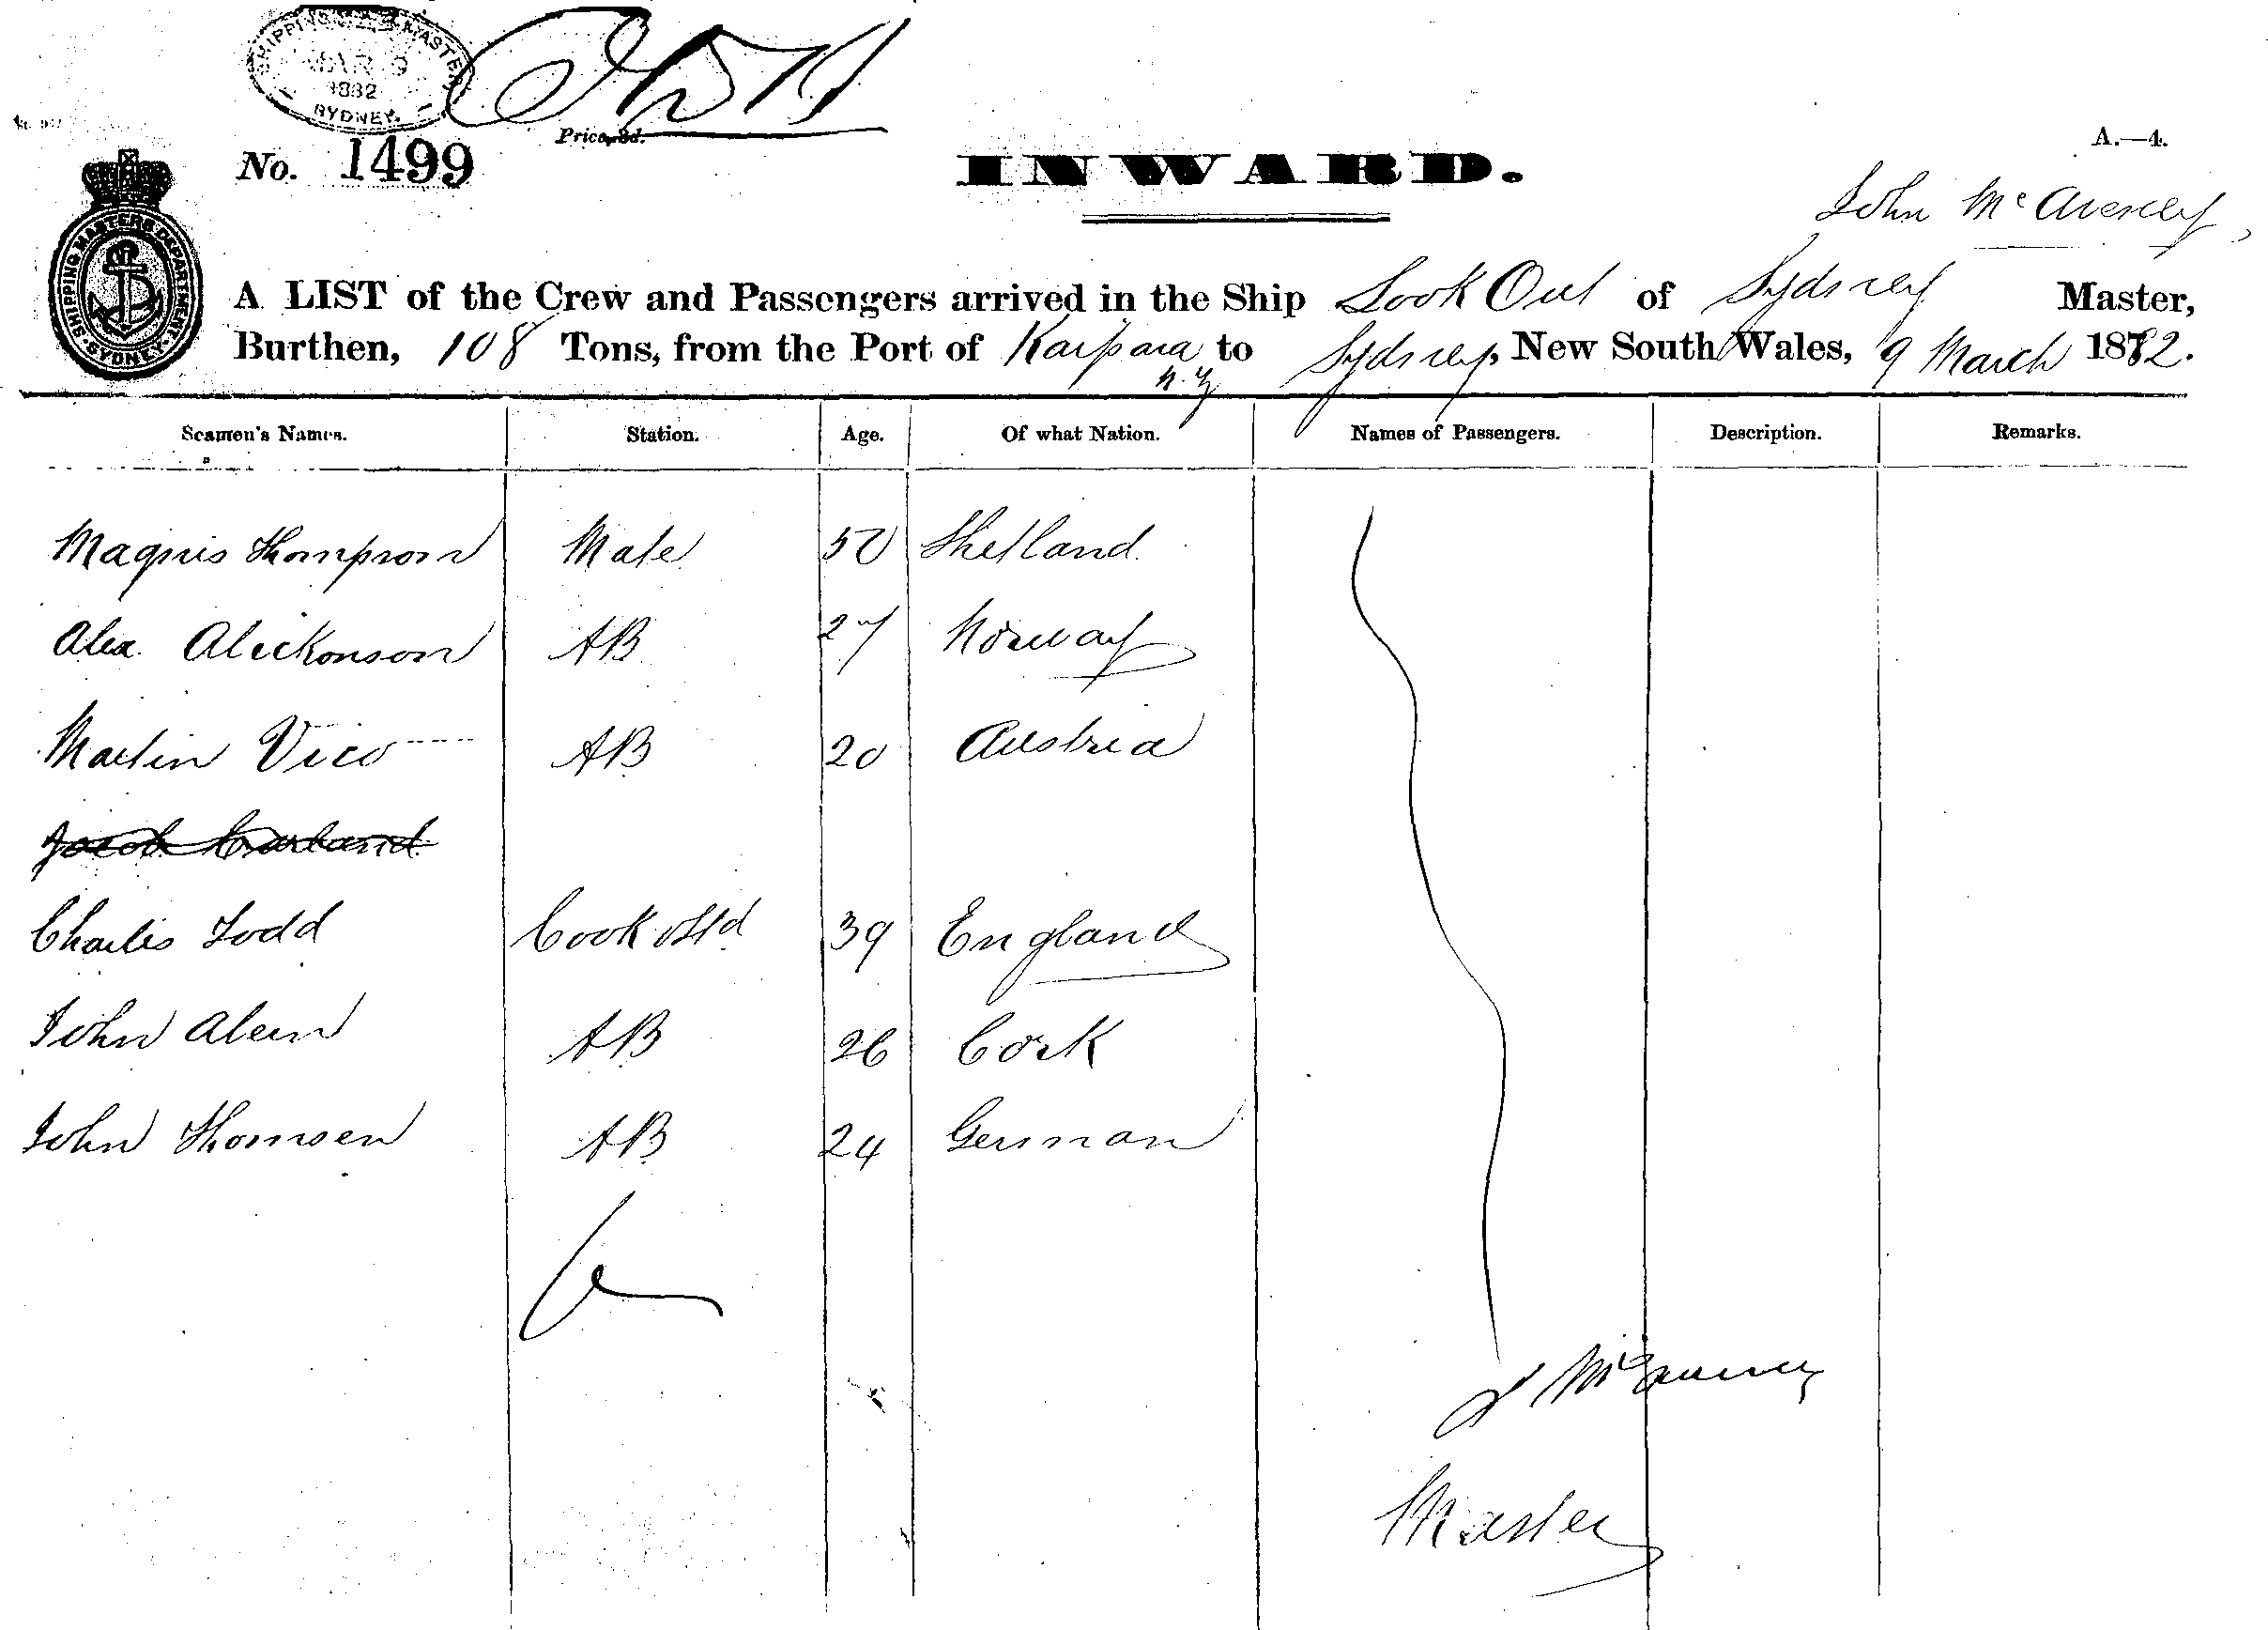 SHIPPING MASTER
MAR 9
1882
SYDNEY.
Price, 3d.
No. 1499
INWARD.
A.—4.
SHIPPING MASTERS DEPARTMENT SYDNEY
John Mc
A LIST of the Crew and Passengers arrived in the Ship Look Out of Sydney Master,
Burthen, 108 Tons, from the Port of Kaipara N.Z to Sydney, New South Wales, 9 March 1882.
Seamen's Names. Station. Age. Of what Nation. Names of Passengers. Description. Remarks.
Magnis Thompson Mate 50 Shetland.
Alex. Aleckonson AB 27 Norway
Martin Vico AB 20 Austria
Jacob
Charles Todd Cook & Std 39 England
John AB 26 Cork
John Thomsen AB 24 German
J
Master